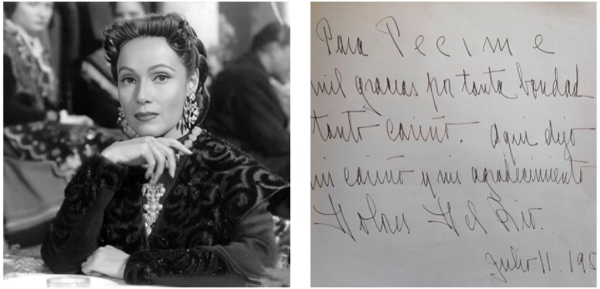 Para Pecime
mil gracias por tanta bondad
tanto cariño. aqui dejo
mi cariño y mi agradecimiento
Dolores Del Rio.
Julio 11. 195